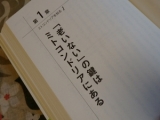 第1章
「老いない」の鍵は
ミトコンドリアにある